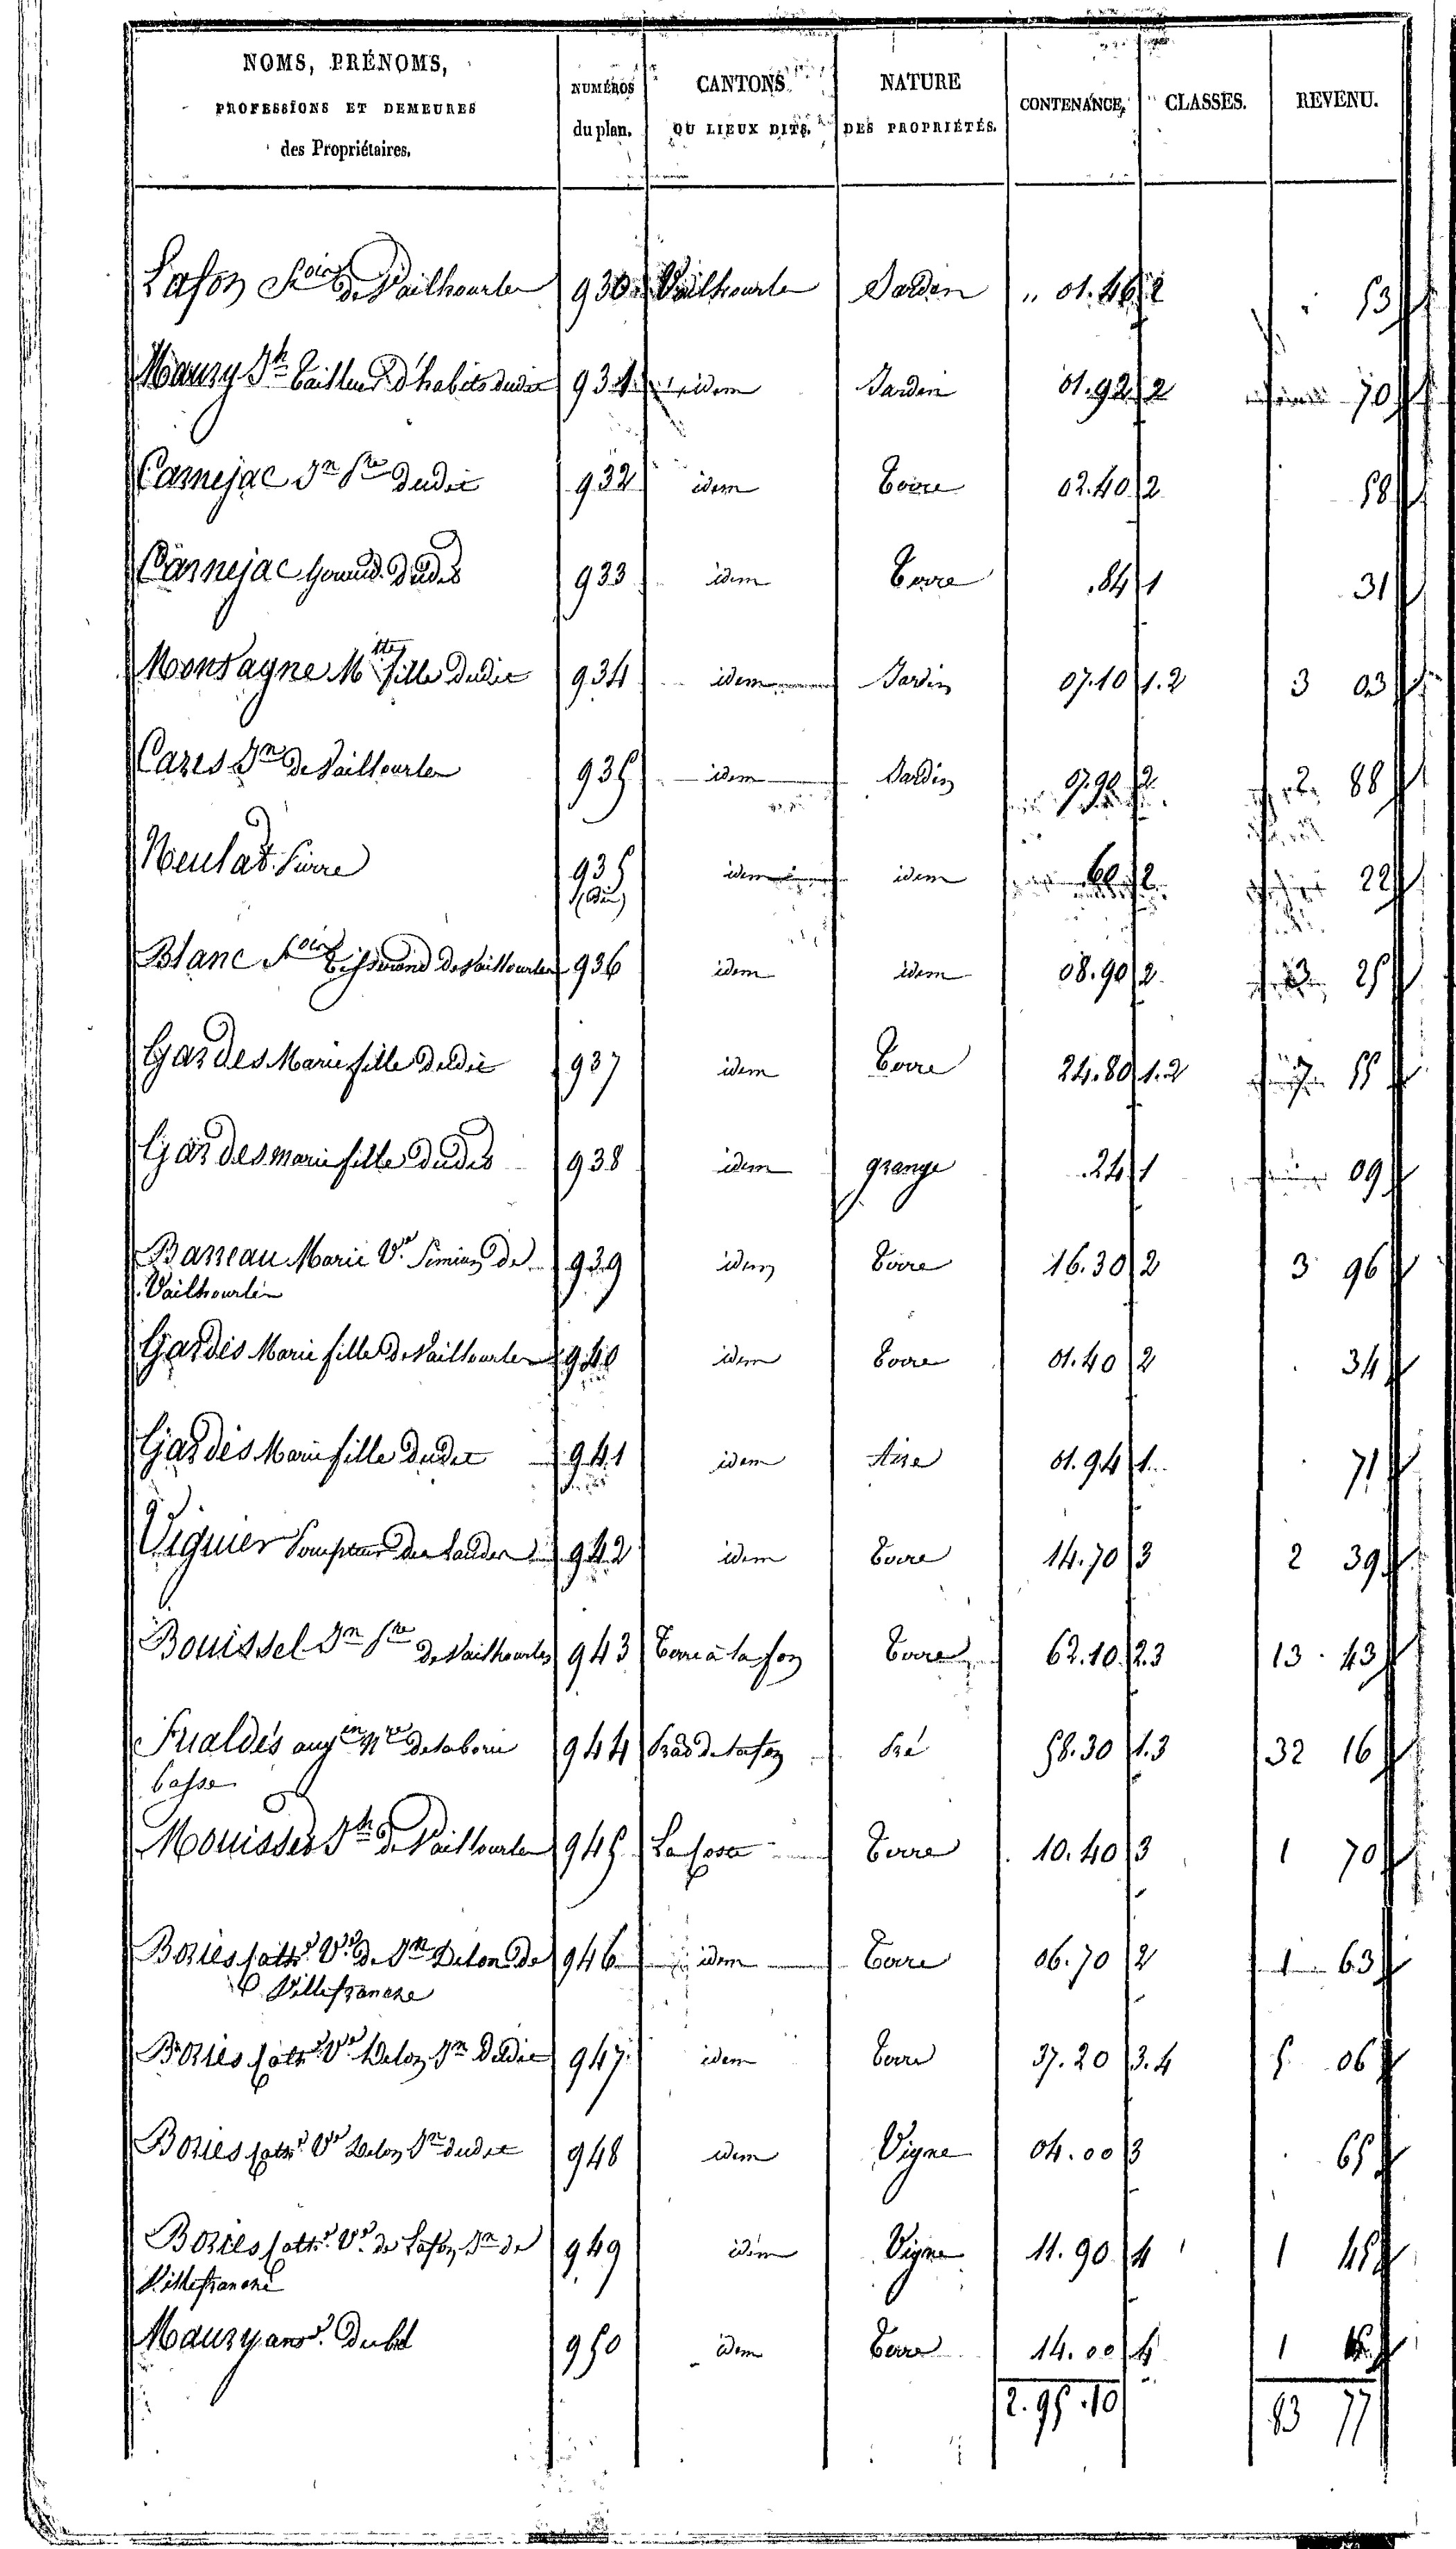 NOMS, PRÉNOMS,
PROFESSIONS ET DEMEURES
des Propriétaires.
NUMÉROS
du plan.
CANTONS
OU LIEUX DITS.
NATURE
DES PROPRIÉTÉS.
CONTENANCE,
CLASSES.
REVENU.
Lafon de Vailhourles 930 Vailhourles Jardin 01.46 2 53
Maury Jh Tailleur d'habits dudit 931 idem Jardin 01.92 2 70
Carnejac Jn Pre dudit 932 idem Terre 02.40 2 58
Carnejac dudit 933 idem Terre 84 1 31
Montagne Mtte fille dudit 934 idem Jardin 07.10 1.2 3 03
Cazes Jn de Vailhourles 935 idem Jardin 07.90 2 2 88
Neulat Pierre 935 idem idem 60 2 22
(bis)
Blanc Tisserand de Vailhourles 936 idem idem 08.90 2 3 25
Gardes Marie fille dudit 937 idem Terre 24.80 1.2 7 55
Gardes marie fille dudit 938 idem grange 24 1 09
Marie Ve de 939 idem Terre 16.30 2 3 96
Vailhourles
Gardes Marie fille de Vailhourles 940 idem Terre 01.40 2 34
Gardes Marie fille dudit 941 idem Aire 01.94 1 71
Viguier 942 idem Terre 14.70 3 2 39
Bouissel Jn Pre de Vailhourles 943 Terre à la fon Terre 62.10 2.3 13 43
Fualdés augen Nre de laborie 944 Prad de lafon Pré 58.30 1.3 32 16
basse
Mouisses Jh de Vailhourles 945 La Terre 10.40 3 1 70
Bories Cathe Ve de Jn Delon de 946 idem Terre 06.70 2 1 63
Villefranche
Bories Cathe Ve Delon Jn dudit 947 idem Terre 37.20 3.4 5 06
Bories Cathe Ve Delon Jn dudit 948 idem Vigne 04.00 3 65
Bories Cathe Ve de Lafon Jn de 949 idem Vigne 11.90 4 1 45
Villefranche
Maury 950 idem Terre 14.00 4 1
2.95.10 83 77